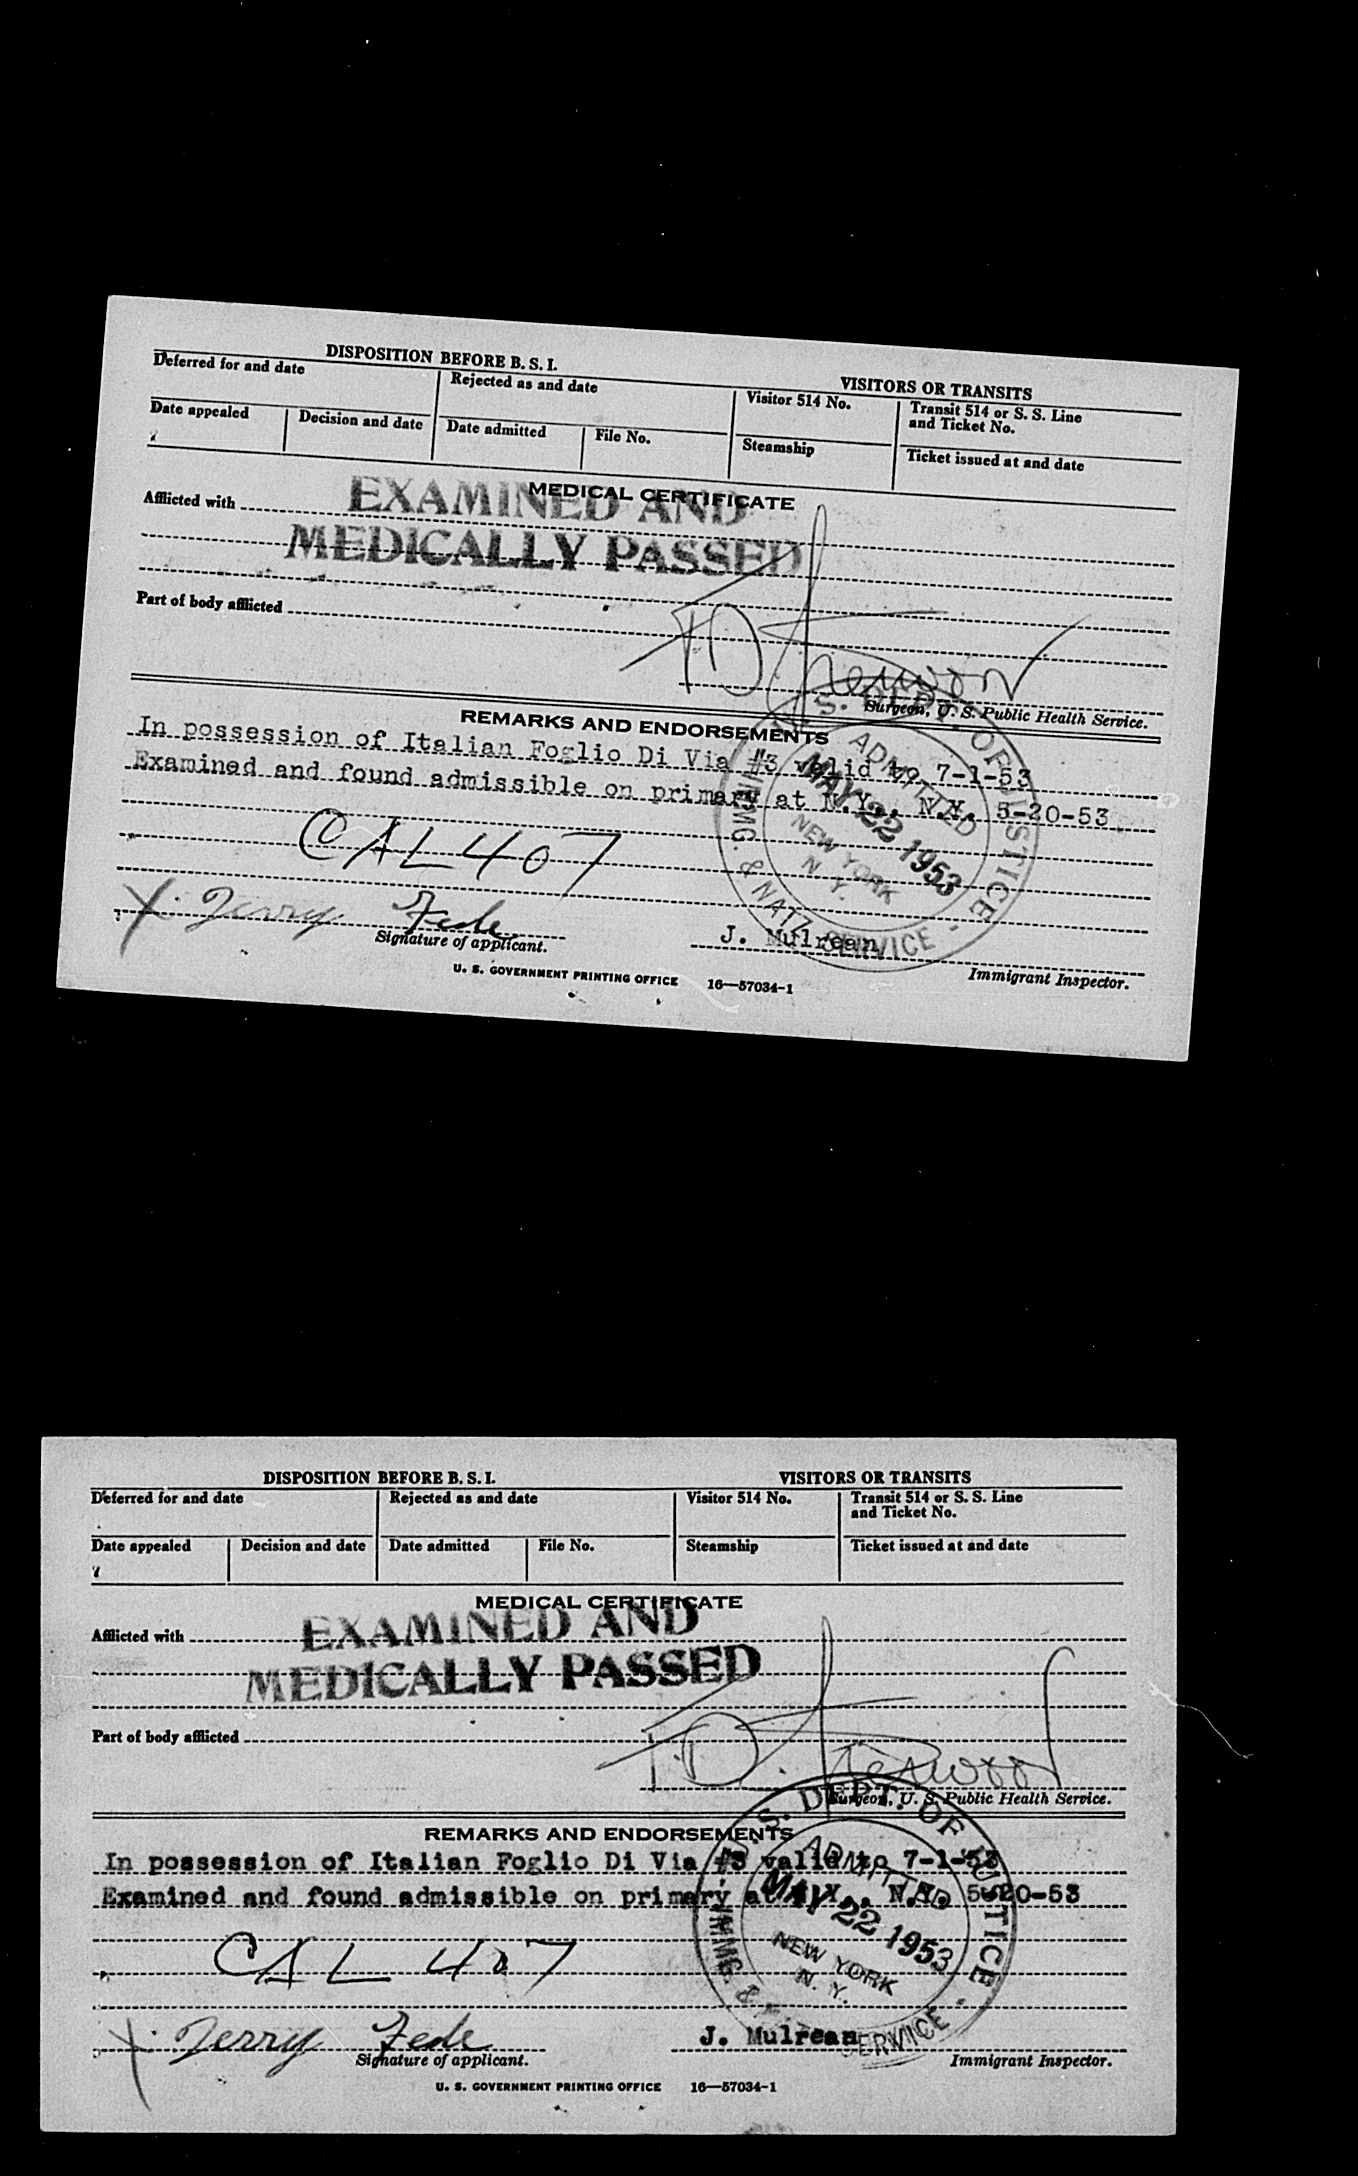 DISPOSITION BEFORE B. S. I.
VISITORS OR TRANSITS
Deferred for and date
Rejected as and date
Visitor 514 No.
Transit 514 or S. S. Line
and Ticket No.
Date appealed
Decision and date
Date admitted
File No.
Steamship
Ticket issued at and date
MEDICAL CERTIFICATE
Afflicted with
EXAMINED AND
MEDICALLY PASSED
Part of body afflicted
Surgeon, U. S. Public Health Service.
REMARKS AND ENDORSEMENTS
In possession of Italian Foglio Di Via #3 valid to 7-1-53
Examined and found admissible on primary at N.Y., N.Y. 5-20-53
U. S. DEPT. OF JUSTICE
ADMITTED
MAY 22 1953
NEW YORK
N. Y.
IMMG. & NATZ SERVICE
CAL 407
X. Jerry Fede
Signature of applicant.
J. Mulrean
Immigrant Inspector.
U. S. GOVERNMENT PRINTING OFFICE 16—57034-1
DISPOSITION BEFORE B. S. I.
VISITORS OR TRANSITS
Deferred for and date
Rejected as and date
Visitor 514 No.
Transit 514 or S. S. Line
and Ticket No.
Date appealed
Decision and date
Date admitted
File No.
Steamship
Ticket issued at and date
MEDICAL CERTIFICATE
Afflicted with
EXAMINED AND
MEDICALLY PASSED
Part of body afflicted
Surgeon, U. S. Public Health Service.
REMARKS AND ENDORSEMENTS
In possession of Italian Foglio Di Via #3 valid to 7-1-53
Examined and found admissible on primary at N.Y., N.Y. 5-20-53
U. S. DEPT. OF JUSTICE
ADMITTED
MAY 22 1953
NEW YORK
N. Y.
IMMG. & SERVICE
CAL 407
X. Jerry Fede
Signature of applicant.
J. Mulrean
Immigrant Inspector.
U. S. GOVERNMENT PRINTING OFFICE 16—57034-1